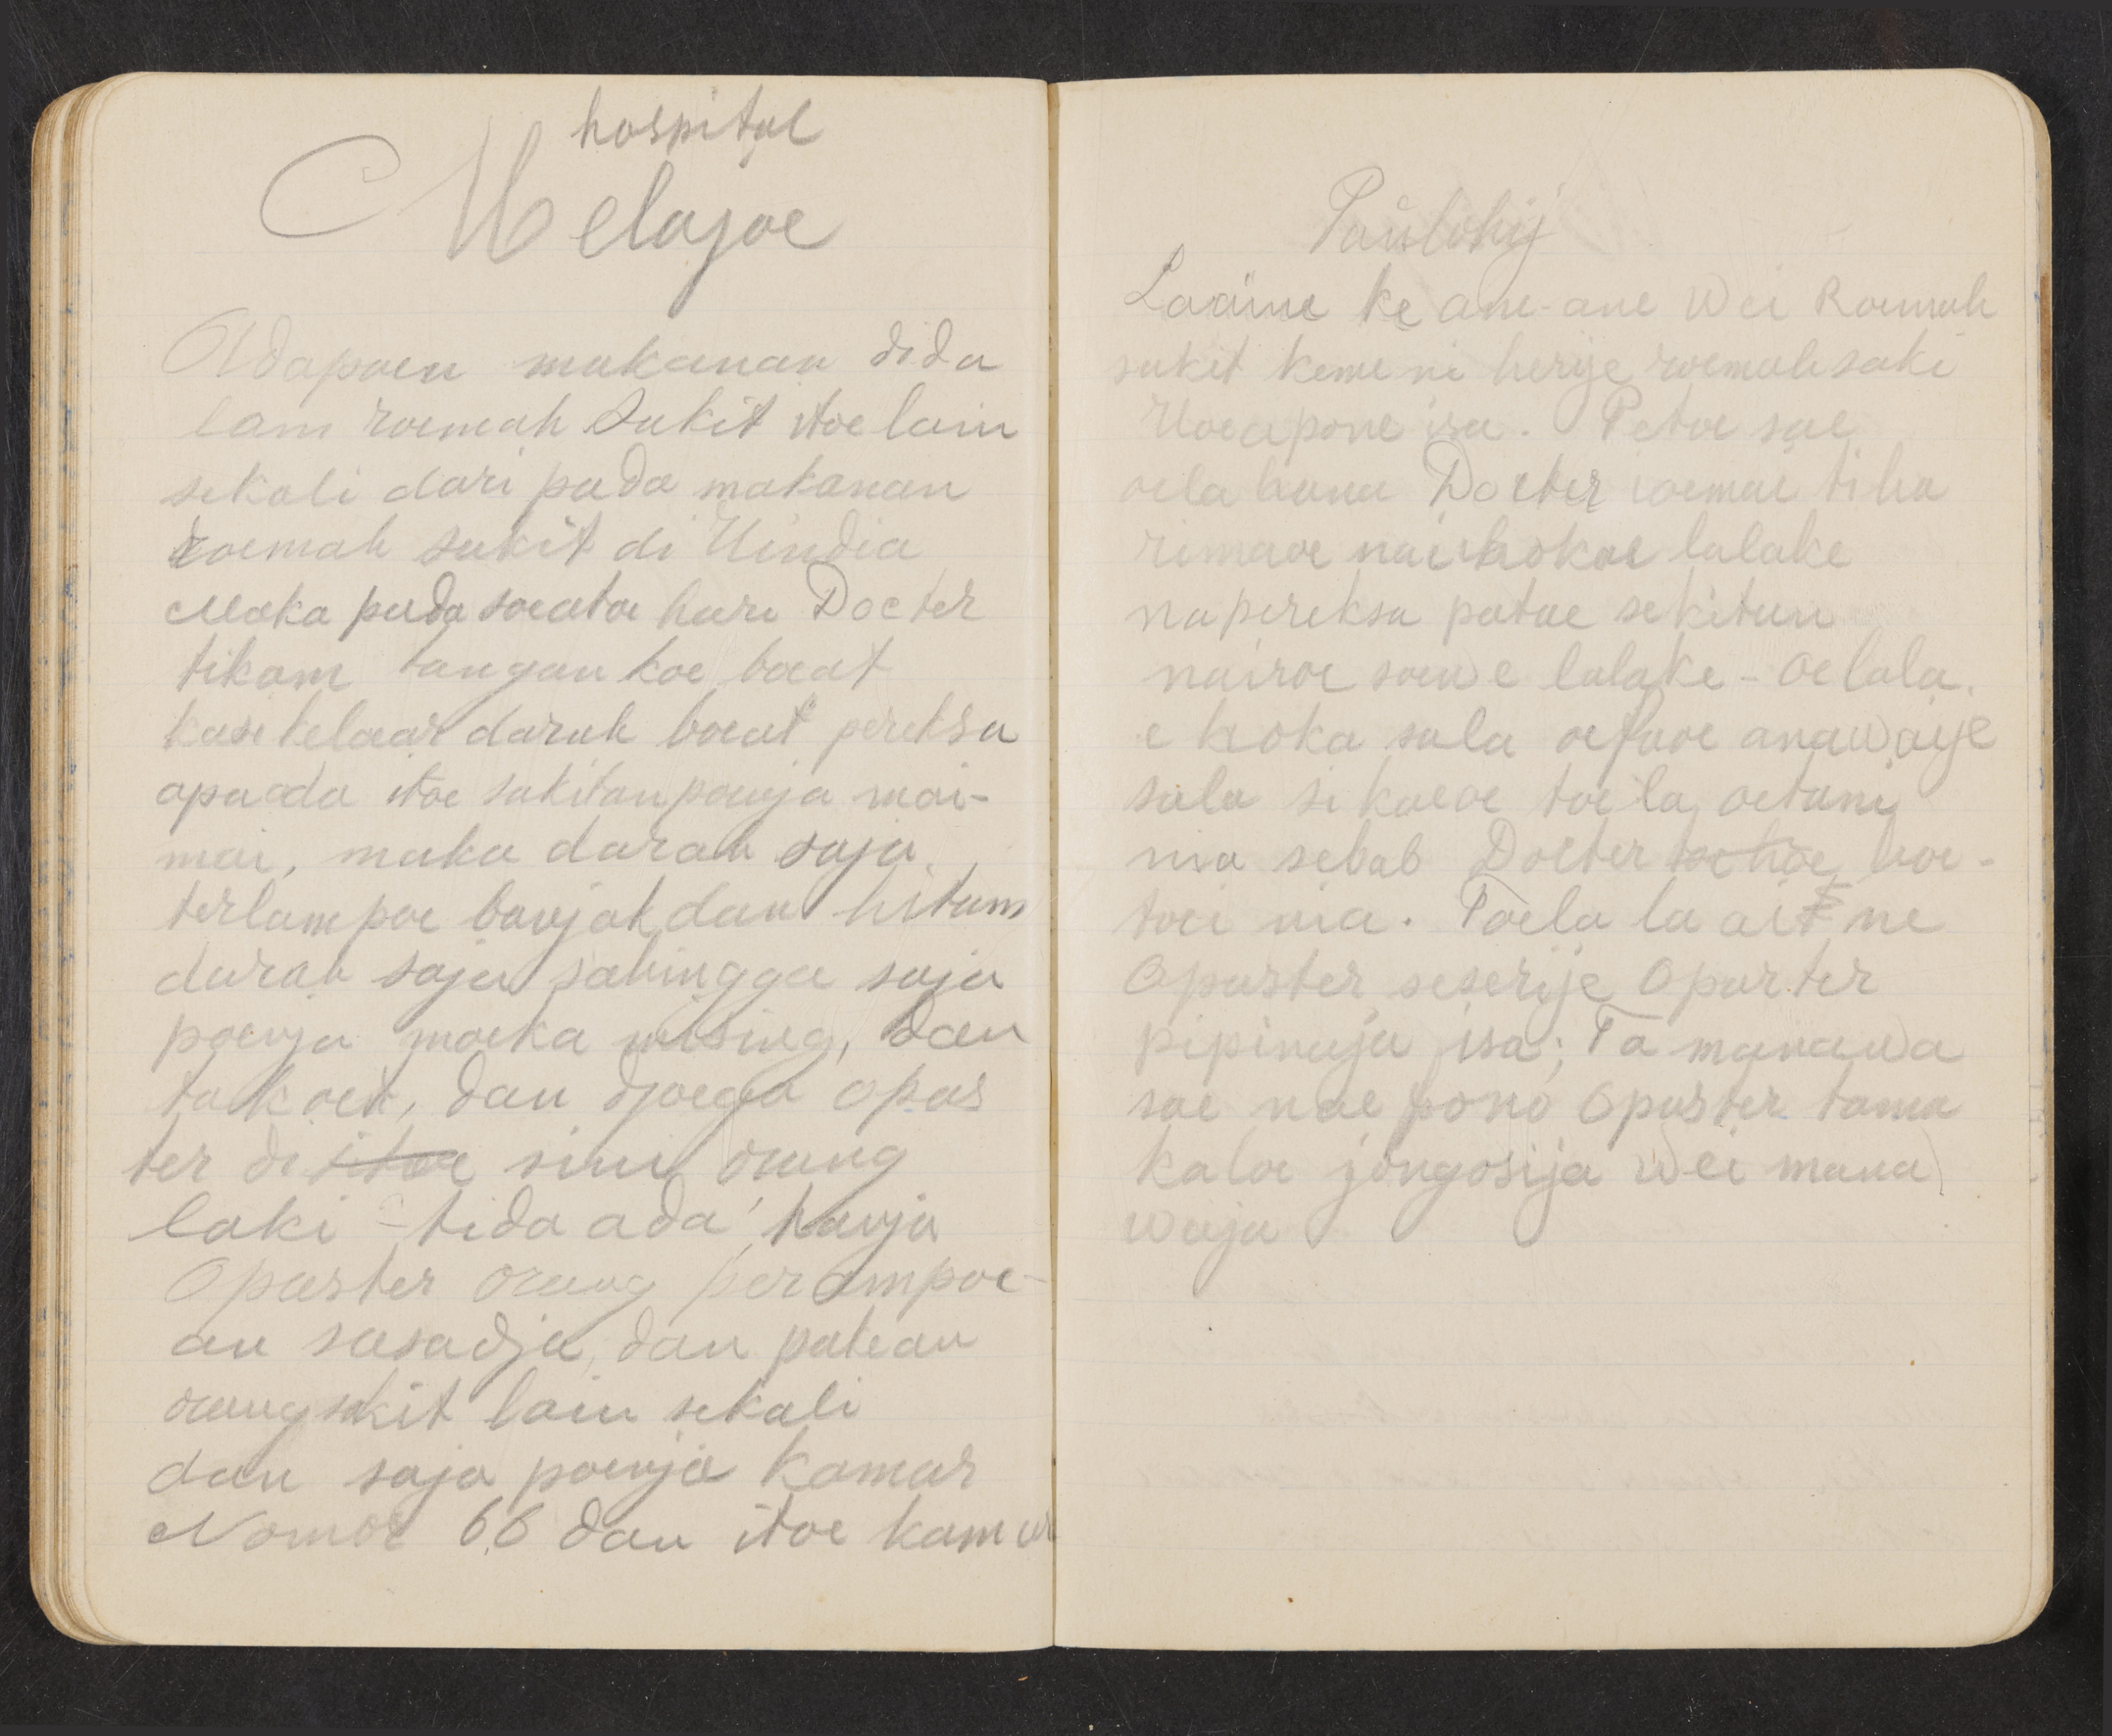 hospital
Melajoe
Adapoen makanan dida
lam roemah Sakit itoe lain
sekali dari pada makanan
roemah sakit di Hindia
Maka pada soeatoe hari Docter
tikam tangan koe boeat
kasi kelaar darah boeat pereksa
apa ada itoe sakitan poenja mai-
mai, maka darah saja
terlampoe banjak dan hitam
darah saja sahingga saja
poenja moeka mising, dan
takoet, dan djoega opas
ter di itoe sini orang
laki - tida ada, hanja
Opaster orang perampoe-
an sasadja, dan pakean
orang skit lain sekali
dan saja poenja kamar
Nomor 66 dan itoe kamar
Paulohij
Laäine ke ane-ane Wei Roemah
sakit keme ni herije roemah saki
Hoeapone isa. Petoe sae
oela hana Docter roemae tiha
rimaoe nai hokoe lalake
napereksa patae sekitan
nairoe soewe lalake - oe lala.
e hoka sala oefaoe anawaije
sala si kaeoe toe la oetani
nia sebab Docter hoe-
toei nia. Toela la ait ne
Opaster seserije Opaster
pipinaja isa; Ta manawa
sae nae pono Opaster tama
kaloe jongosija Wei mana
waija